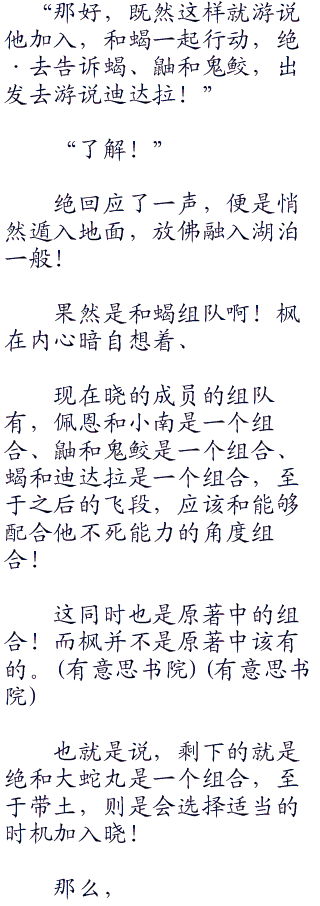 “那好，既然这样就游说
他加入，和蝎一起行动，绝
·去告诉蝎、鼬和鬼鲛，出
发去游说迪达拉！”
“了解！”
绝回应了一声，便是悄
然遁入地面，放佛融入湖泊
一般！
果然是和蝎组队啊！枫
在内心暗自想着、
现在晓的成员的组队
有，佩恩和小南是一个组
合、鼬和鬼鲛是一个组合、
蝎和迪达拉是一个组合，至
于之后的飞段，应该和能够
配合他不死能力的角度组
合！
这同时也是原著中的组
合！而枫并不是原著中该有
的。(有意思书院)(有意思书
院)
也就是说，剩下的就是
绝和大蛇丸是一个组合，至
于带土，则是会选择适当的
时机加入晓！
那么，